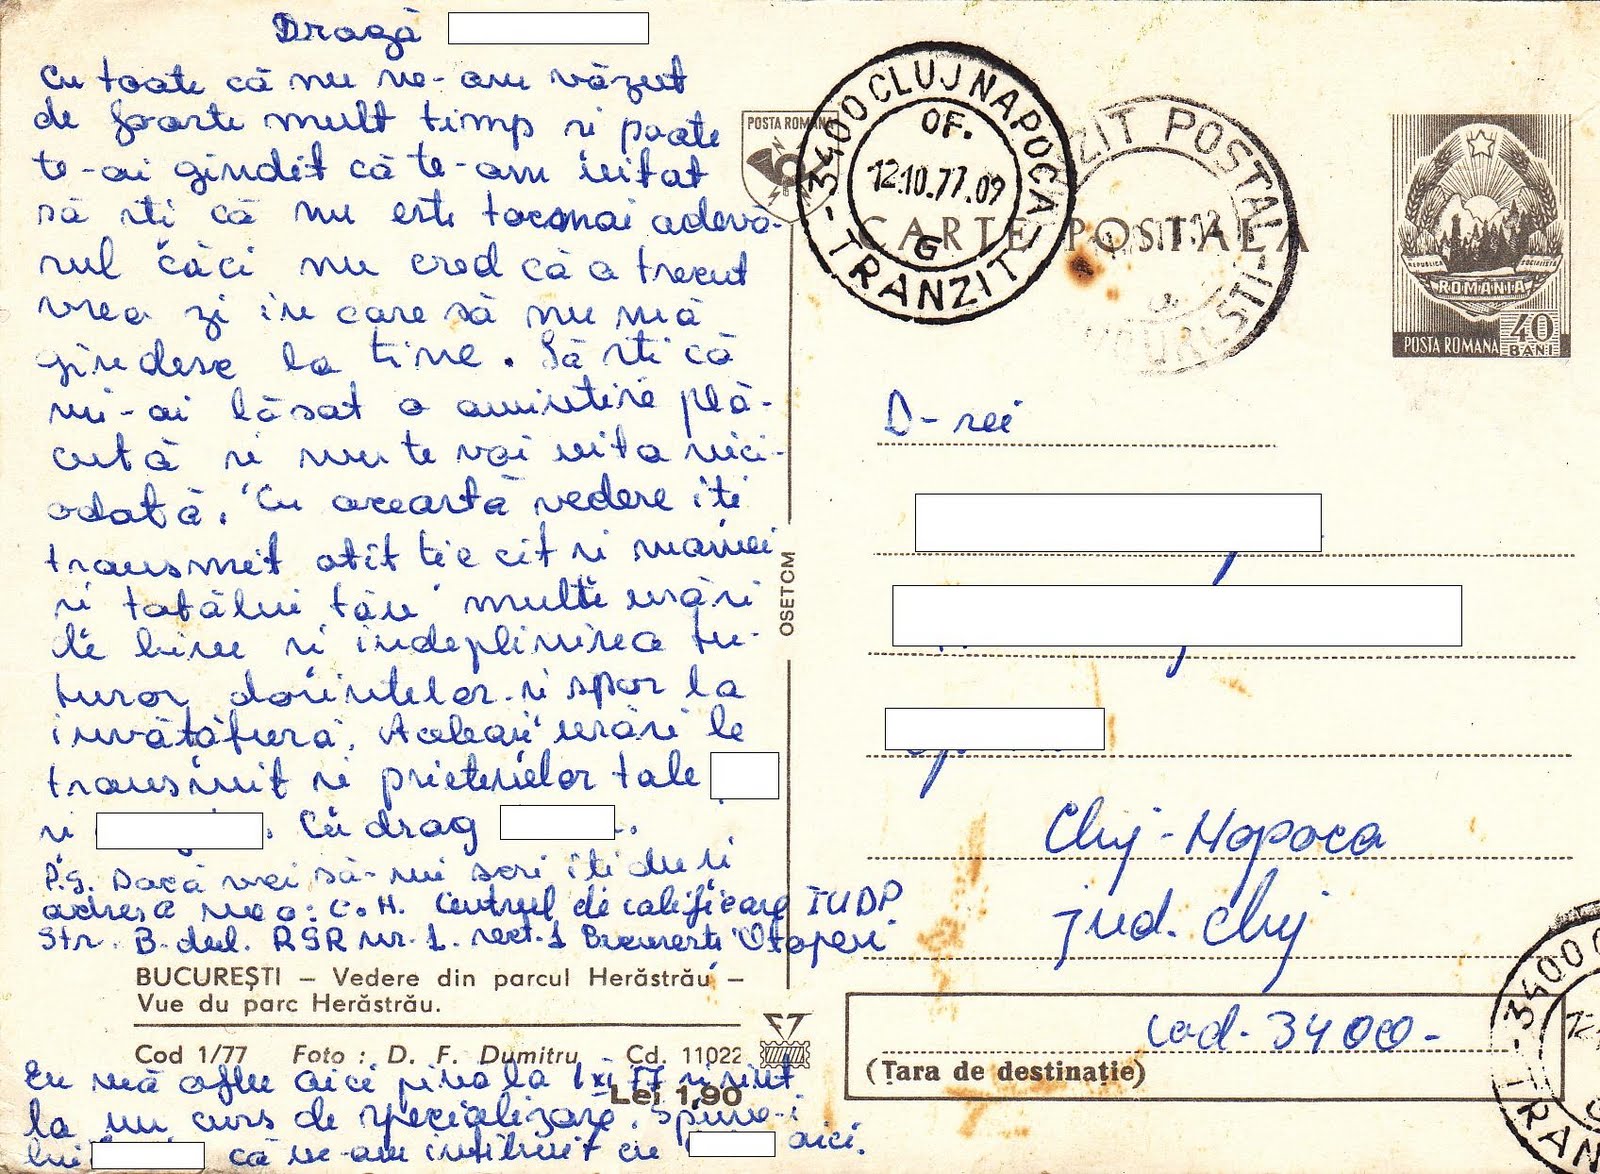 Dragă
Cu toate că nu ne-am văzut
de foarte mult timp și poate
te-ai gîndit că te-am uitat
să știi că nu este tocmai adevă-
rul căci nu cred că a trecut
vreo zi in care să nu mă
gindesc la tine. Să știi că
mi-ai lăsat o amintire plă-
cută și nu te voi uita nici-
odată. Cu această vedere iți
transmit atit ție cit și mamei
și tatălui tău multe urări
de bine și indeplinirea tu-
turor dorințelor și spor la
invățătură. Aceleași urări le
transmit și prietenelor tale
și . Cu drag .
P.S. Dacă vrei să-mi scri iți dau și
adresa mea: C.H. Centrul de calificare IUDP
Str. B-dul. RSR nr. 1. sect. 1 București Otopeni
BUCUREȘTI – Vedere din parcul Herăstrău –
Vue du parc Herăstrău.
Cod 1/77 Foto : D. F. Dumitru Cd. 11022
Lei 1,90
Eu mă aflu aici pina la 1 XI 77 și sint
la un curs de specializare. Spune-i
lui că ne-am intilnit cu aici.
OSETCM
POSTA ROMANA
3400 CLUJ NAPOCA
OF.
12.10.77.09
G
- TRANZIT -
TRANZIT POSTAL
BUCURESTI
CARTE POSTALA
REPUBLICA SOCIALISTA
ROMANIA
POSTA ROMANA 40 BANI
D-rei
Cluj-Napoca
jud. Cluj
cod. 3400-
(Țara de destinație)
3400
TRAN